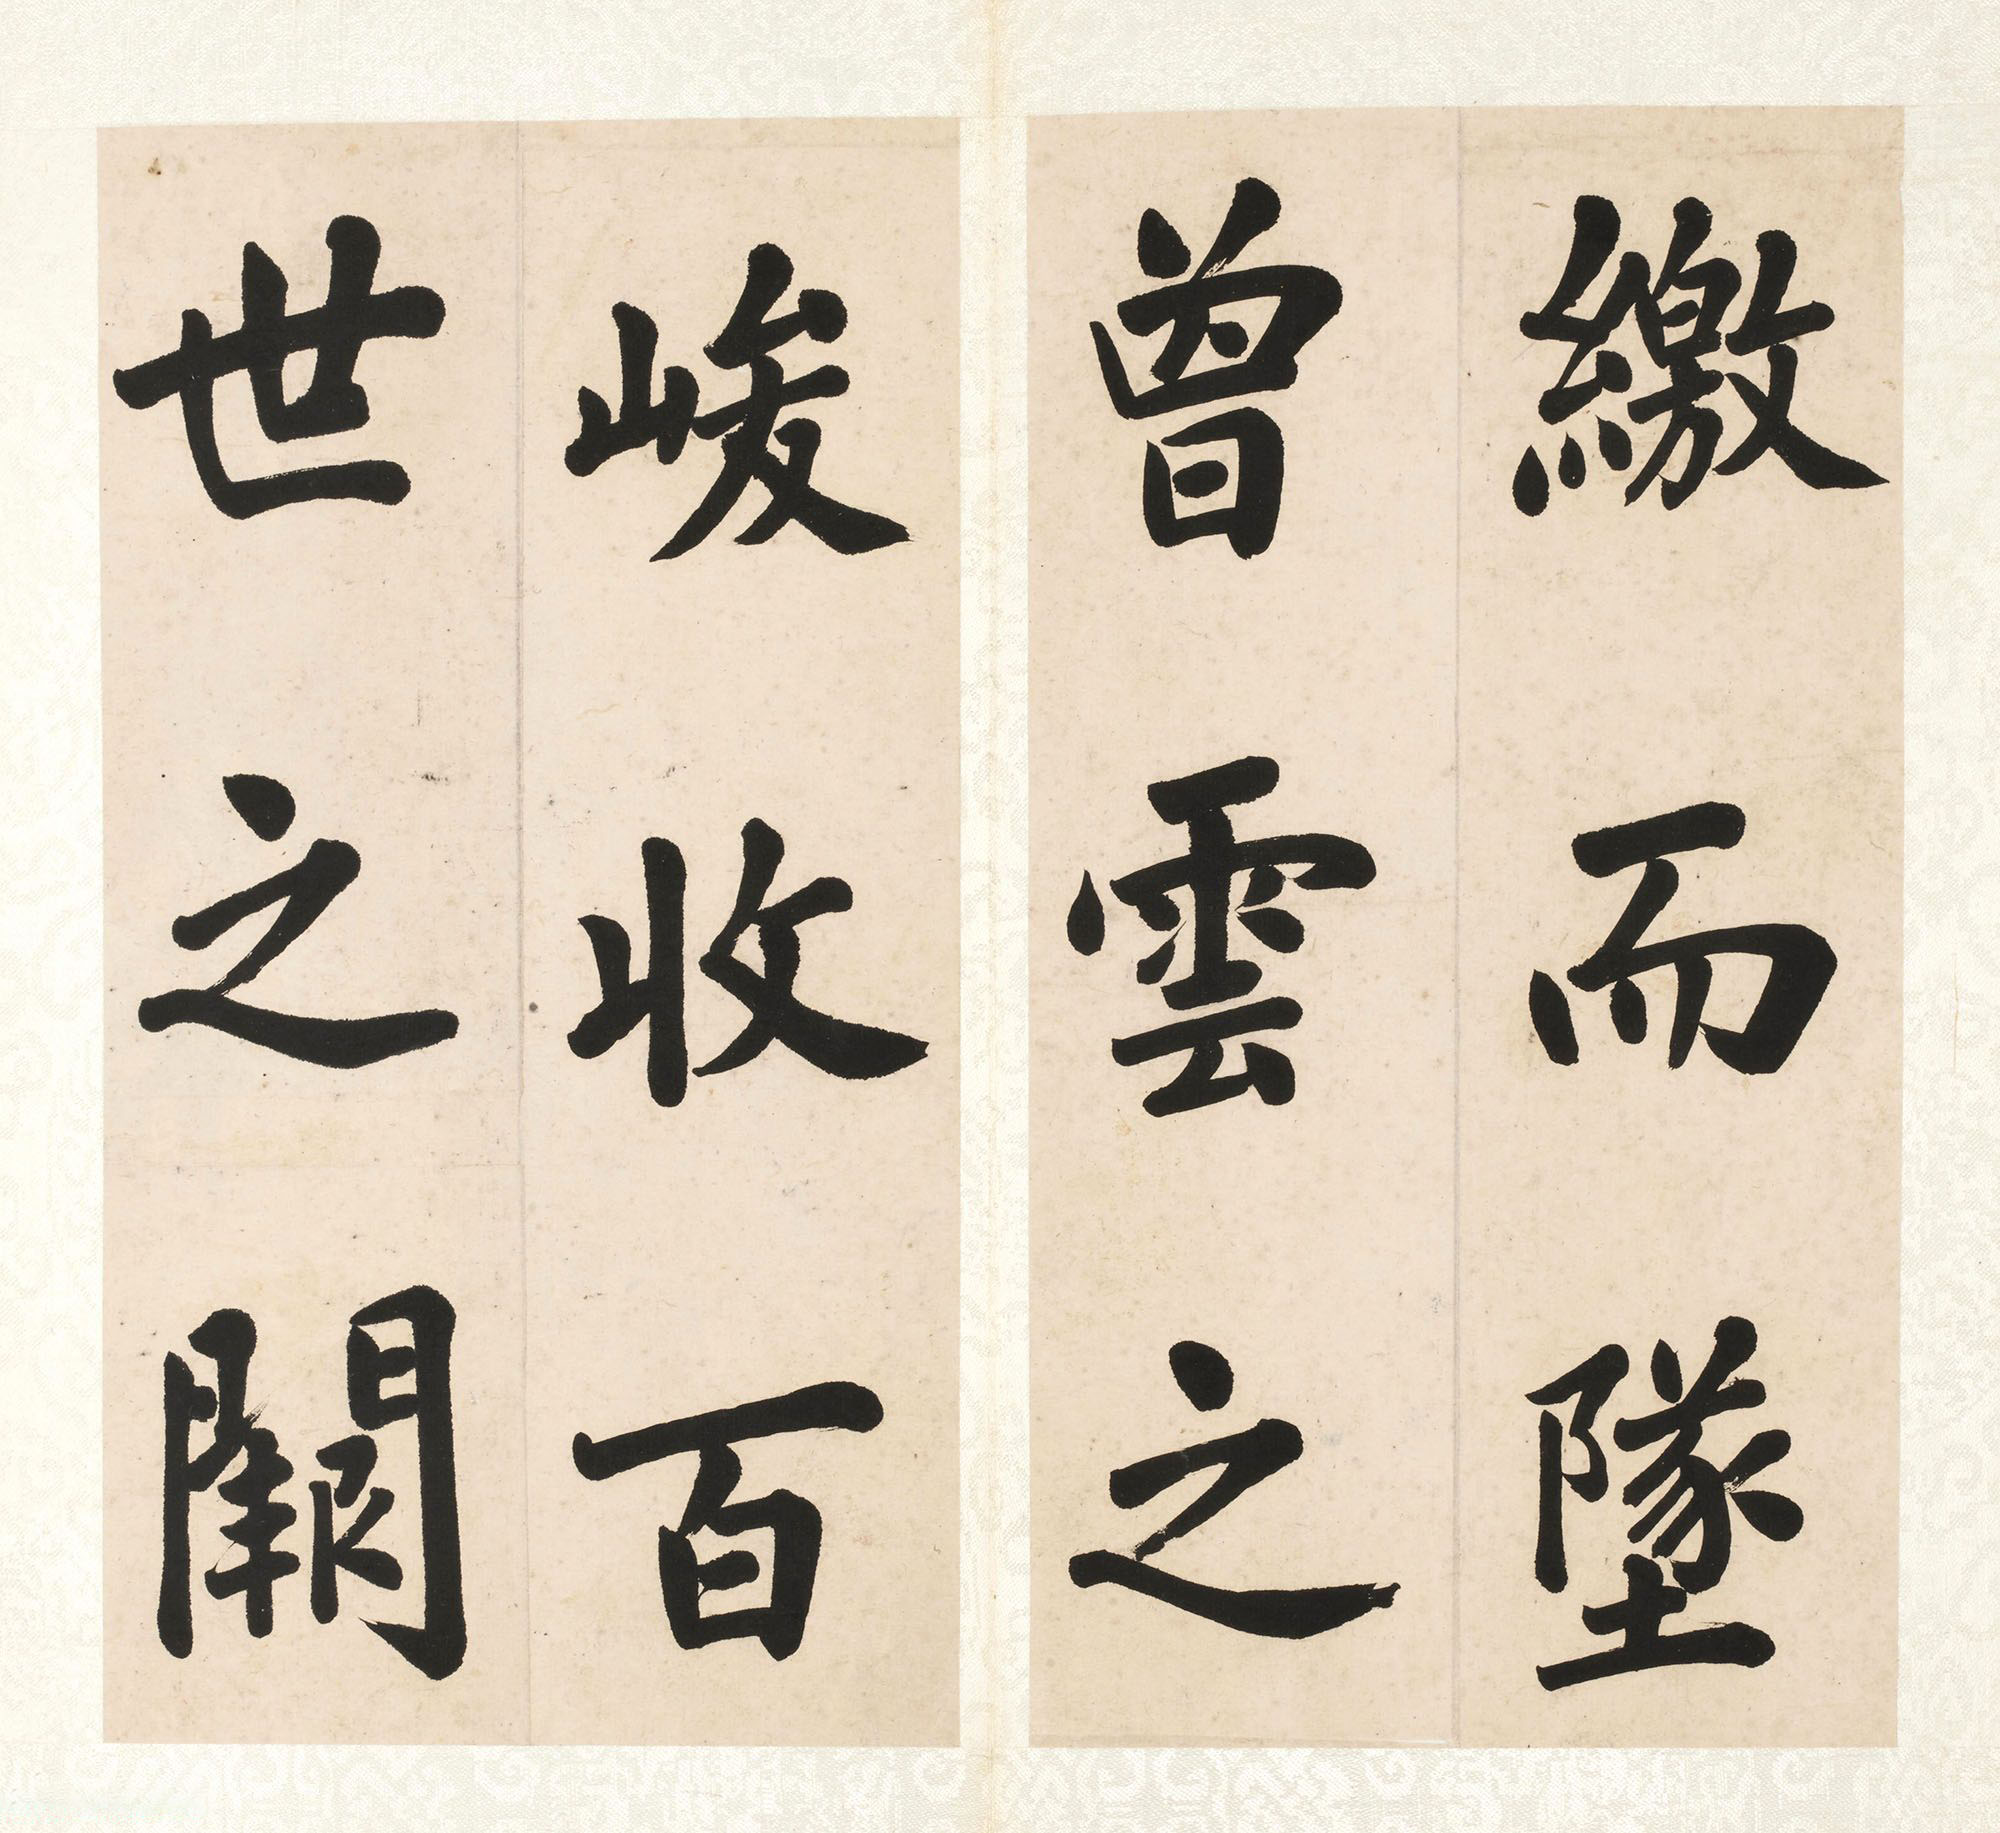 繳而墜
曾雲之
峻收百
世之闕